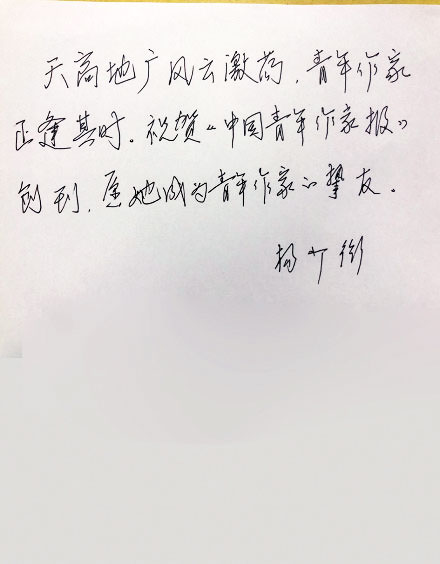 天高地广风云激荡，青年作家
正逢其时。祝贺《中国青年作家报》
创刊，愿她成为青年作家的挚友。
杨少衡